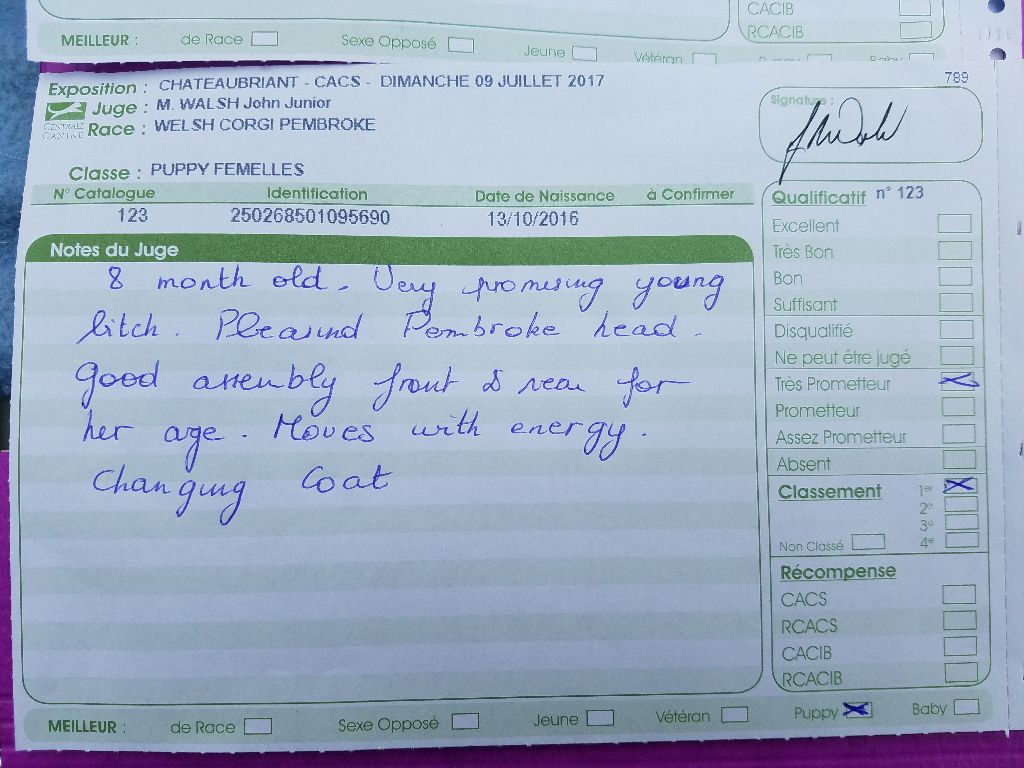 CACIB
RCACIB
MEILLEUR : de Race Sexe Opposé Jeune Vétéran Puppy Baby
789
Exposition : CHATEAUBRIANT - CACS - DIMANCHE 09 JUILLET 2017
Juge : M. WALSH John Junior
CENTRALE CANINE
Race : WELSH CORGI PEMBROKE
Signature :
Classe : PUPPY FEMELLES
N° Catalogue Identification Date de Naissance à Confirmer
123 250268501095690 13/10/2016
Notes du Juge
8 month old. Very promising young
bitch. Pleasind Pembroke head.
Good assembly front & rear for
her age. Moves with energy.
Changing Coat
Qualificatif n° 123
Excellent
Très Bon
Bon
Suffisant
Disqualifié
Ne peut être jugé
Très Prometteur
Prometteur
Assez Prometteur
Absent
Classement 1er
2e
3e
Non Classé 4e
Récompense
CACS
RCACS
CACIB
RCACIB
MEILLEUR : de Race Sexe Opposé Jeune Vétéran Puppy Baby